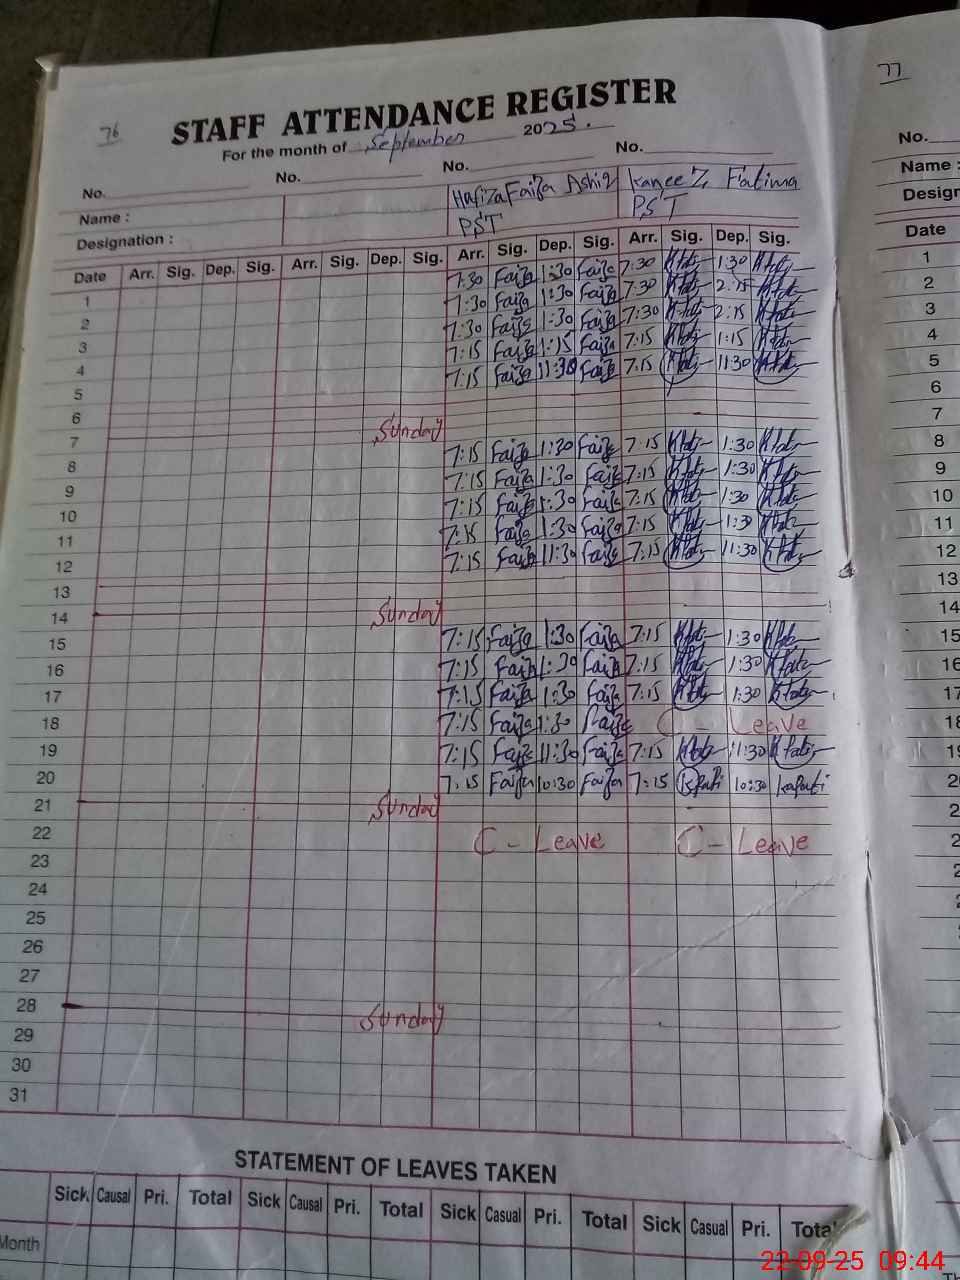 76
77
STAFF ATTENDANCE REGISTER
For the month of September 2025.
No. No. No. No.
Name : Hafiza Faiza Ashiq Kaneez Fatima
Designation : PST PST
Date Arr. Sig. Dep. Sig. Arr. Sig. Dep. Sig. Arr. Sig. Dep. Sig. Arr. Sig. Dep. Sig.
1 7:30 Faiza 1:30 Faiza 7:30 1:30
2 7:30 Faiza 1:30 Faiza 7:30 2:15
3 7:30 Faiza 1:30 Faiza 7:30 2:15
4 7:15 Faiza 1:15 Faiza 7:15 1:15
5 7:15 Faiza 11:30 Faiza 7:15 11:30
6
7 Sunday
8 7:15 Faiza 1:30 Faiza 7:15 1:30
9 7:15 Faiza 1:30 Faiza 7:15 1:30
10 7:15 Faiza 1:30 Faiza 7:15 1:30
11 7:15 Faiza 1:30 Faiza 7:15 1:30
12 7:15 Faiza 11:30 Faiza 7:15 11:30
13
14 Sunday
15 7:15 Faiza 1:30 Faiza 7:15 1:30
16 7:15 Faiza 1:30 Faiza 7:15 1:30
17 7:15 Faiza 1:30 Faiza 7:15 1:30
18 7:15 Faiza 1:30 Faiza C - Leave
19 7:15 Faiza 11:30 Faiza 7:15 11:30
20 7:15 Faiza 10:30 Faiza 7:15 10:30
21 Sunday
22 C - Leave C - Leave
23
24
25
26
27
28 Sunday
29
30
31
STATEMENT OF LEAVES TAKEN
Sick Causal Pri. Total Sick Causal Pri. Total Sick Casual Pri. Total Sick Casual Pri. Total
Month
No.
Name :
Design
Date
1
2
3
4
5
6
7
8
9
10
11
12
13
14
15
16
17
18
22-09-25 09:44